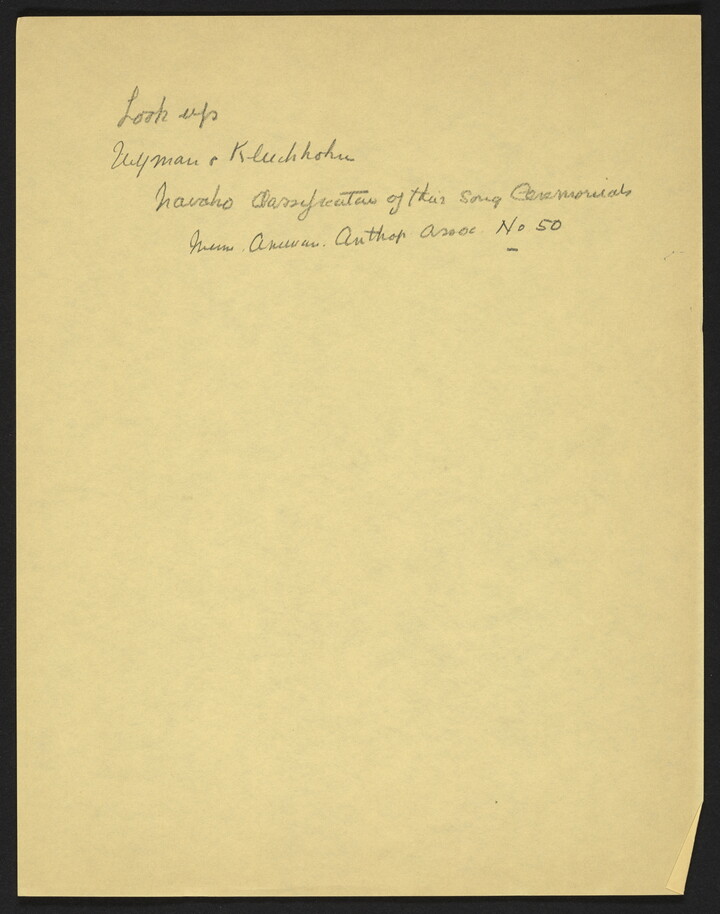 Look up
Wyman & Kluckhohn
Navaho Classification of their Song Ceremonials
Mem. American. Anthrop Assoc No 50